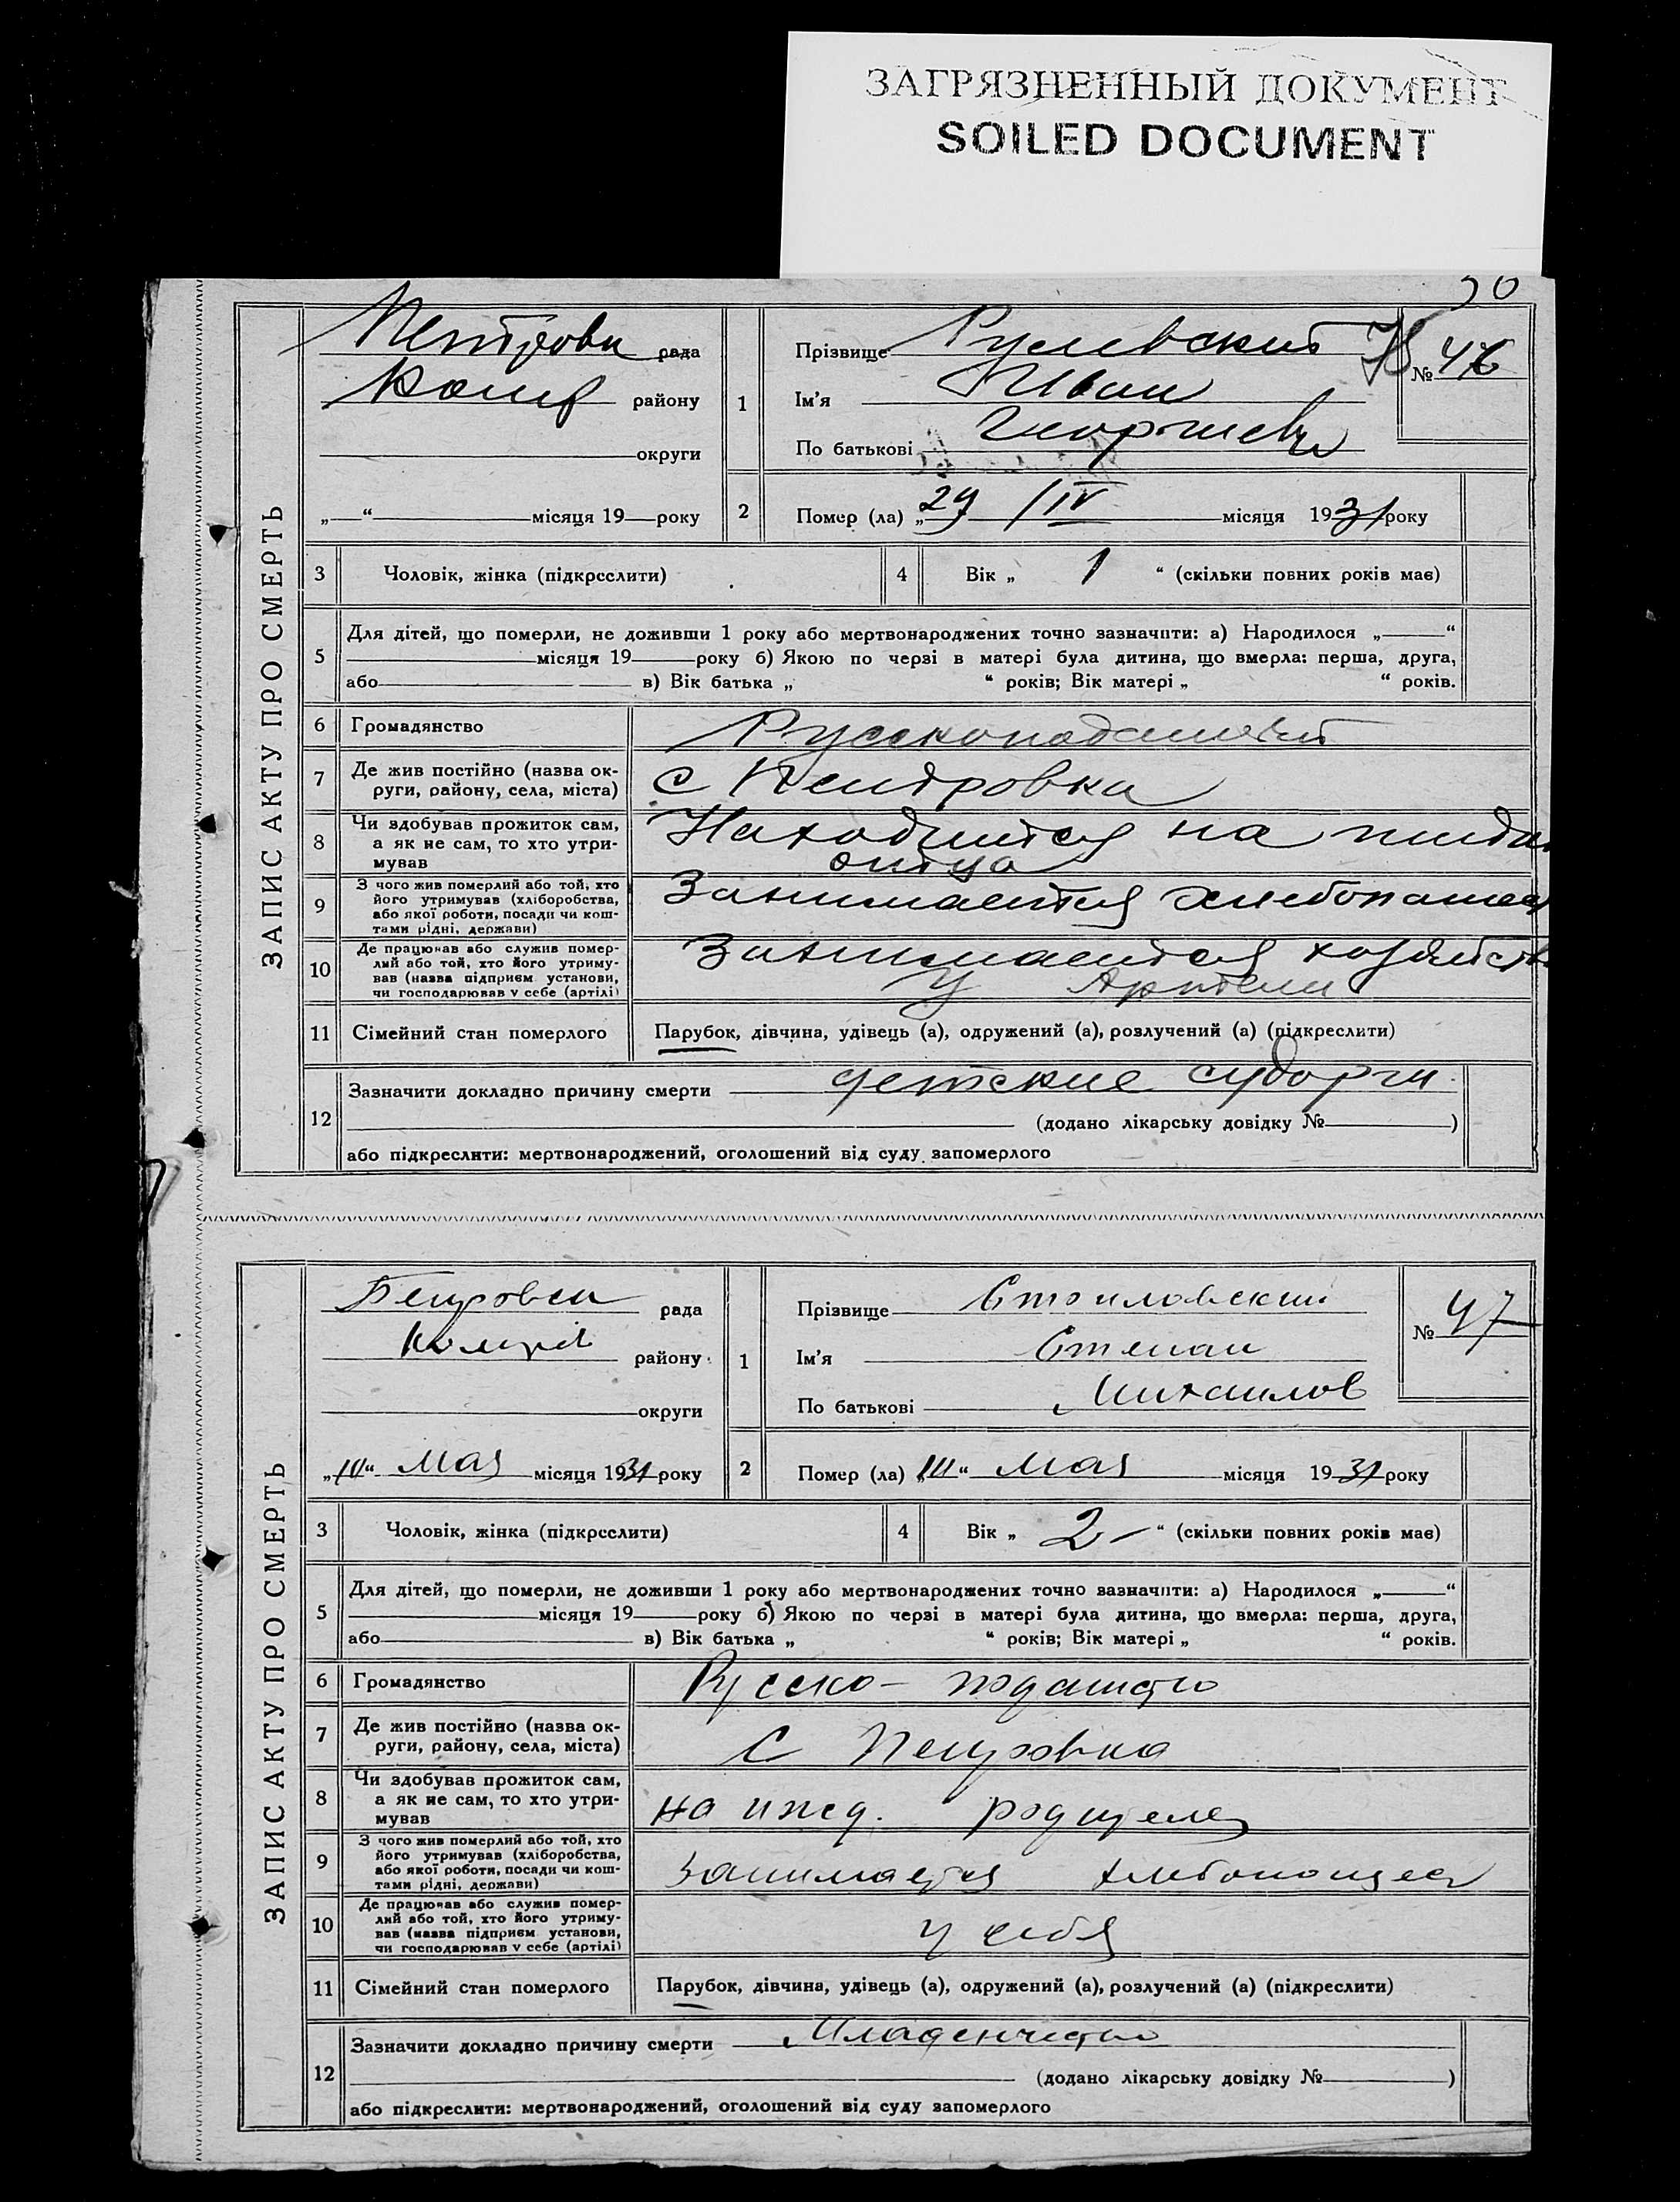 ЗАГРЯЗНЕННЫЙ ДОКУМЕНТ
SOILED DOCUMENT
ЗАПИС АКТУ ПРО СМЕРТЬ
Петровк рада
района району
округи
„ “ місяця 19 року
1
Прізвище Русевский
Ім'я Иван
По батькові Георгиев
№ 46
2
Помер (ла) „29 /IV місяця 1931 року
3 Чоловік, жінка (підкреслити)
4 Вік „ 1 “ (скільки повних років має)
5
Для дітей, що померли, не доживши 1 року або мертвонароджених точно зазначити: а) Народилося „ “
місяця 19 року б) Якою по черзі в матері була дитина, що вмерла: перша, друга,
або в) Вік батька „ “ років; Вік матері „ “ років.
6 Громадянство Русскоподаный
7 Де жив постійно (назва ок-
руги, району, села, міста)
с Петровка
8 Чи здобував прожиток сам,
а як не сам, то хто утри-
мував
Находится на
отца
9 З чого жив померлий або той, хто
його утримував (хліборобства,
або якої роботи, посади чи кош-
тами рідні, держави)
Занимается хлебопашес
10 Де працював або служив помер-
лий або той, хто його утриму-
вав (назва підприєм установи,
чи господарював у себе (артілі)
Занимается хозяйств
У Артели
11 Сімейний стан померлого Парубок, дівчина, удівець (а), одружений (а), розлучений (а) (підкреслити)
12
Зазначити докладно причину смерти детские судорги
(додано лікарську довідку № )
або підкреслити: мертвонароджений, оголошений від суду запомерлого
ЗАПИС АКТУ ПРО СМЕРТЬ
Петровск рада
району
округи
„III“ Мая місяця 1931 року
1
Прізвище Стоиловский
Ім'я Степан
По батькові Михаилов
№ 47
2
Помер (ла) „III“ Мая місяця 1931 року
3 Чоловік, жінка (підкреслити)
4 Вік „ 2 – “ (скільки повних років має)
5
Для дітей, що померли, не доживши 1 року або мертвонароджених точно зазначити: а) Народилося „ “
місяця 19 року б) Якою по черзі в матері була дитина, що вмерла: перша, друга,
або в) Вік батька „ “ років; Вік матері „ “ років.
6 Громадянство Русско-
7 Де жив постійно (назва ок-
руги, району, села, міста)
С Петровка
8 Чи здобував прожиток сам,
а як не сам, то хто утри-
мував
на ижд. родителей
9 З чого жив померлий або той, хто
його утримував (хліборобства,
або якої роботи, посади чи кош-
тами рідні, держави)
занимается
10 Де працював або служив помер-
лий або той, хто його утриму-
вав (назва підприєм установи,
чи господарював у себе (артілі)
у себя
11 Сімейний стан померлого Парубок, дівчина, удівець (а), одружений (а), розлучений (а) (підкреслити)
12
Зазначити докладно причину смерти Младенчество
(додано лікарську довідку № )
або підкреслити: мертвонароджений, оголошений від суду запомерлого